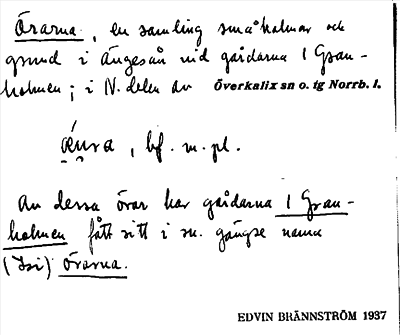 Örarna, en samling småholmar och
grund i Ängesån vid gårdarna 1 Gran-
holmen; i N. delen av Överkalix sn o. tg Norrb. l.
bf. m. pl.
Av dessa örar har gårdarna 1 Gran-
holmen fått sitt i sn. gängse namn
Örarna.
EDVIN BRÄNNSTRÖM 1937